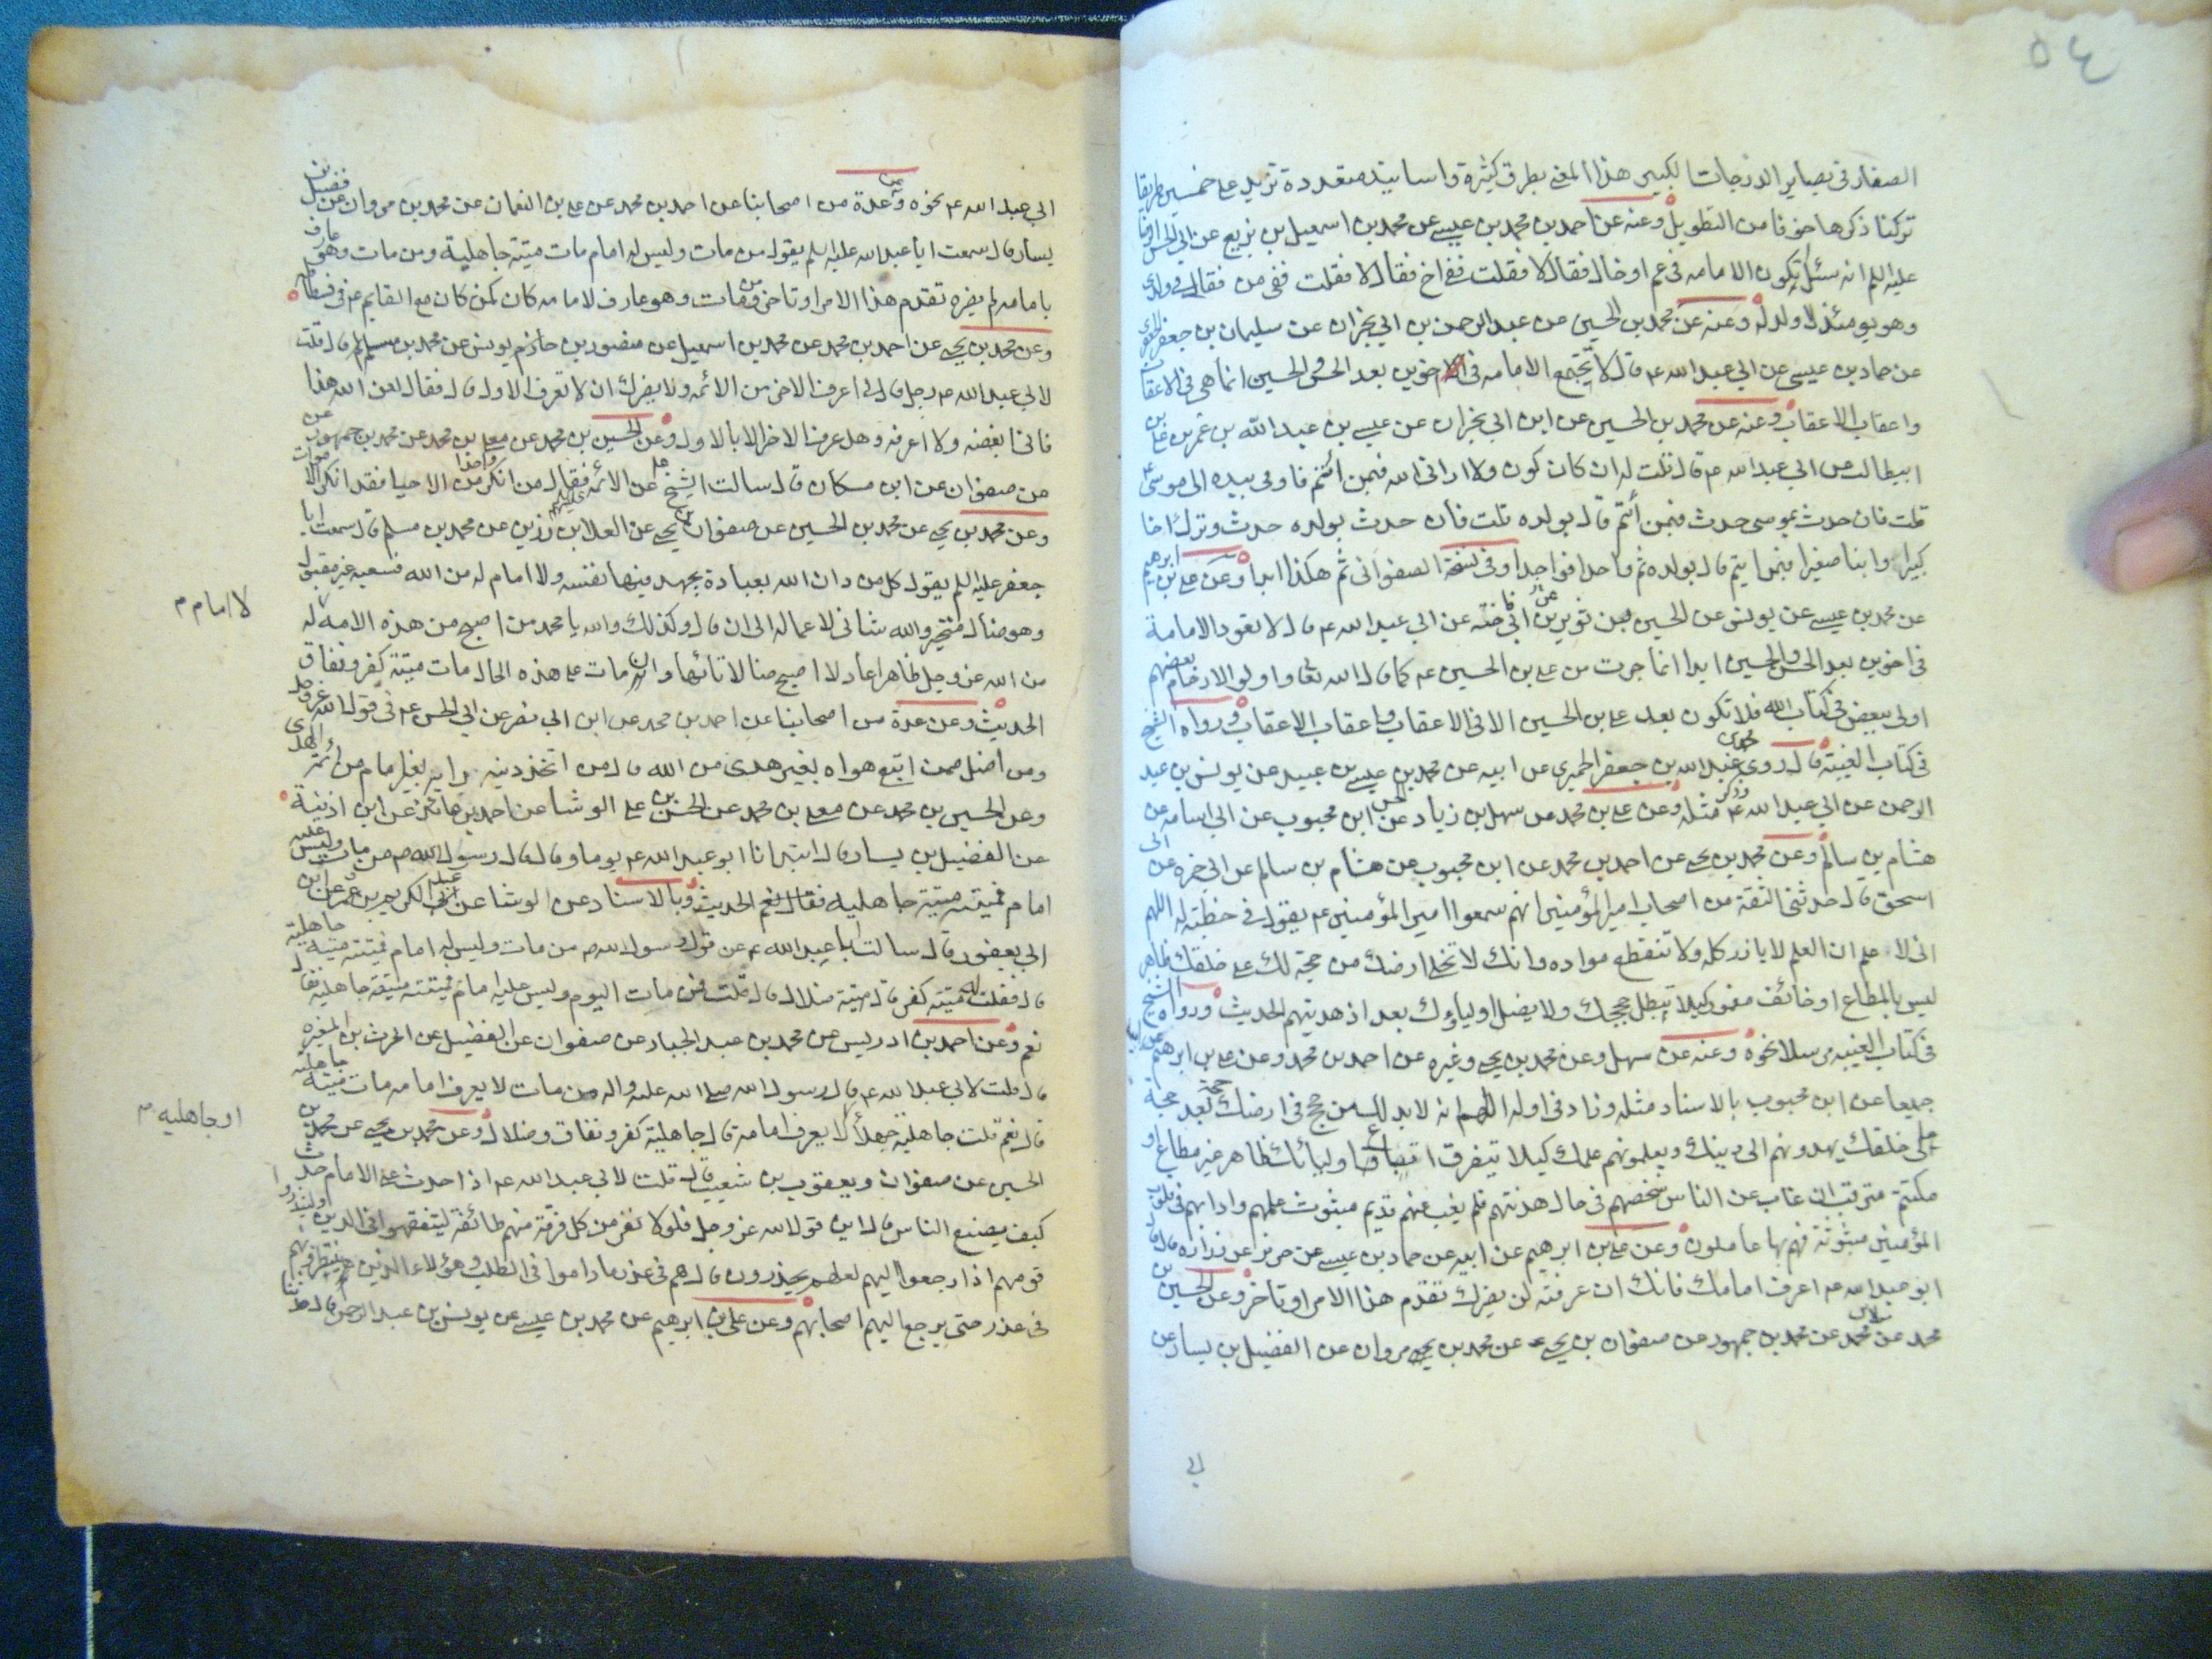 ٥٤
الصفار فى بصاير الدرجات الكبير هذا المعنى بطرق كثيرة واسانيد متعددة تزيد على خمسين طريقا
تركنا ذكرها خوفا من التطويل وعنه عن احمد بن محمد بن عيسى عن محمد بن اسمعيل بن بزيع عن ابي الحسن الرضا
عليه السلم انه سئل اتكون الامامه فى عم او خال فقال لا فقلت ففى اخ فقال لا فقلت ففى من فقال فى ولدى
وهو يومئذ لا ولد له وعنه عن محمد بن الحسين عن عبد الرحمن بن ابي نجران عن سليمان بن جعفر الجعفرى
عن حماد بن عيسى عن ابي عبد الله ع قال لا تجتمع الامامه فى اخوين بعد الحسن والحسين انما هى فى الاعقاب
واعقاب الاعقاب وعنه عن محمد بن الحسين عن ابن ابي نجران عن عيسى بن عبد الله بن عمر بن على بن
ابيطالب عن ابي عبد الله ع قال قلت له ان كان كون ولا ارانى الله فبمن أئتم فاومى بيده الى موسى ع
قلت فان حدث بموسى حدث فبمن أئتم قال بولده قلت فان حدث بولده حدث وترك اخا
كبيرا وابنا صغيرا فبمن ايتم قال بولده ثم واحدا فواحدا وفى نسخة الصفوانى ثم هكذا ابدا وعن على بن ابرهيم
عن محمد بن عيسى عن يونس عن الحسين بن ثوير بن ابي فاخته عن ابي عبد الله ع قال لا تعود الامامة
فى اخوين بعد الحسن والحسين ابدا انما جرت من على بن الحسين ع كما قال الله تعالى واولو الارحام بعضهم
اولى ببعض فى كتاب الله فلا تكون بعد على بن الحسين الا فى الاعقاب واعقاب الاعقاب ورواه الشيخ
فى كتاب الغيبة قال روى محمد بن عبد الله بن جعفر الحميرى عن ابيه عن محمد بن عيسى بن عبيد عن يونس بن عبد
الرحمن عن ابي عبد الله ع وذكر مثله وعن على بن محمد عن سهل بن زياد عن الحسن ابن محبوب عن ابي اسامه عن
هشام بن سالم وعن محمد بن يحيى عن احمد بن محمد عن ابن محبوب عن هشام بن سالم عن ابي حمزه عن ابي
اسحق قال حدثنى الثقة من اصحاب امير المؤمنين انهم سمعوا امير المؤمنين ع يقول فى خطبته له اللهم
انى لا علم ان العلم لا يازر كله ولا تنقطع مواده وانك لا تخلى ارضك من حجة لك على خلقك ظاهر
ليس بالمطاع او خائف مغمور كيلا تبطل حججك ولا يضل اولياؤك بعد اذ هديتهم الحديث ورواه الشيخ
فى كتاب الغيبه مرسلا نحوه وعنه عن سهل وعن محمد بن يحيى وغيره عن احمد بن محمد وعن على بن ابرهيم عن ابيه
جميعا عن ابن محبوب بالاسناد مثله وزاد فى اوله اللهم انه لابد لك من حجج فى ارضك حجة بعد حجة
على خلقك يهدونهم الى دينك ويعلمونهم علمك كيلا يتفرق اتباع اوليائك ظاهر غير مطاع او
مكتتم مترقب ان غاب عن الناس شخصهم فى حال هدنتهم فلم يغب عنهم قديم مبثوث علمهم وادابهم فى قلوب
المؤمنين مثبوثة فهم بها عاملون وعن على بن ابرهيم عن ابيه عن حماد بن عيسى عن حريز عن زراره قال قال
ابو عبد الله ع اعرف امامك فانك ان عرفته لن يضرك تقدم هذا الامر او تاخر وعن الحسين بن
محمد عن محمد عن محمد بن جمهور عن صفوان بن يحيى عن محمد بن مروان عن الفضيل بن يسار عن
الي
ابي عبد الله ع نحوه وعن عدة من اصحابنا عن احمد بن محمد عن على بن النعمان عن محمد بن مروان عن فضيل بن
يسار قال سمعت ابا عبد الله عليه السلم يقول من مات وليس له امام مات ميتة جاهلية ومن مات وهو عارف
بامامه لم يضره تقدم هذا الامر او تاخر ومن مات وهو عارف لامامه كان كمن كان مع القايم ع فى فسطاطه
وعن محمد بن يحيى عن احمد بن محمد عن محمد بن اسمعيل عن منصور بن يونس عن محمد بن مسلم قال قلت
لابي عبد الله ع رجل قال لي اعرف الاخر من الائمه ولا يضرك ان لا تعرف الاول قال فقال لعن الله هذا
فانى ابغضه ولا اعرفه وهل عرف الاخر الا بالاول وعن الحسين بن محمد عن معلى بن محمد عن محمد بن جمهور عن
عن صفوان عن ابن مسكان قال سالت الشيخ عن الائمه فقال من انكر واحدا من الاحيا فقد انكر الاموات
وعن محمد بن يحيى عن محمد بن الحسين عن صفوان بن يحيى عن العلا بن رزين عن محمد بن مسلم قال سمعت ابا
جعفر عليه السلم يقول كل من دان الله بعبادة يجهد فيها نفسه ولا امام له من الله فسعيه غير مقبول
وهو ضال متحير والله شانى لاعماله الى ان قال وكذلك والله يا محمد من اصبح من هذه الامه لا امام له
من الله عز وجل ظاهرا عادلا اصبح ضالا تائها وان مات على هذه الحال مات ميتة كفر ونفاق
الحديث وعن عدة من اصحابنا عن احمد بن محمد عن ابن ابي نصر عن ابي الحسن ع فى قول الله عز وجل
ومن اضل ممن اتبع هواه بغير هدى من الله قال من اتخذ دينه رايه بغير امام من ائمة الهدى
وعن الحسين بن محمد عن معلى بن محمد عن الحسن بن على الوشا عن احمد بن عائذ عن ابن اذينة
عن الفضيل بن يسار قال ابتدانا ابو عبد الله ع يوما وقال قال رسول الله ص من مات وليس عليه
امام فميتته ميتة جاهليه فقال نعم الحديث وبالاسناد عن الوشا عن عبد الكريم بن عمرو عن ابن
ابي يعفور قال سالت ابا عبد الله ع عن قول رسول الله ص من مات وليس له امام فميتته ميتة جاهلية
قال فقلت ميتة كفر قال ميتة ضلال قال قلت فمن مات اليوم وليس عليه امام فميتته ميتة جاهلية فقال
نعم وعن احمد بن ادريس عن محمد بن عبد الجبار عن صفوان عن الفضيل عن الحرث بن المغيره
قال قلت لابي عبد الله ع قال رسول الله صلى الله عليه واله من مات لا يعرف امامه مات ميتة جاهلية
قال نعم قلت جاهلية جهلاء او جاهليه لا يعرف امامه قال جاهلية كفر ونفاق وضلال وعن محمد بن يحيى عن محمد بن
الحسين عن صفوان ويعقوب بن شعيب قال قلت لابي عبد الله ع اذا حدث على الامام حدث
كيف يصنع الناس قال اين قول الله عز وجل فلولا نفر من كل فرقة منهم طائفة ليتفقهوا فى الدين ولينذروا
قومهم اذا رجعوا اليهم لعلهم يحذرون قال هم فى عذر ماداموا فى الطلب وهؤلاء الذين ينتظرونهم
فى عذر حتى يرجع اليهم اصحابهم وعن على بن ابرهيم عن محمد بن عيسى عن يونس بن عبد الرحمن قال حدثنا
لا امام م
او جاهليه م